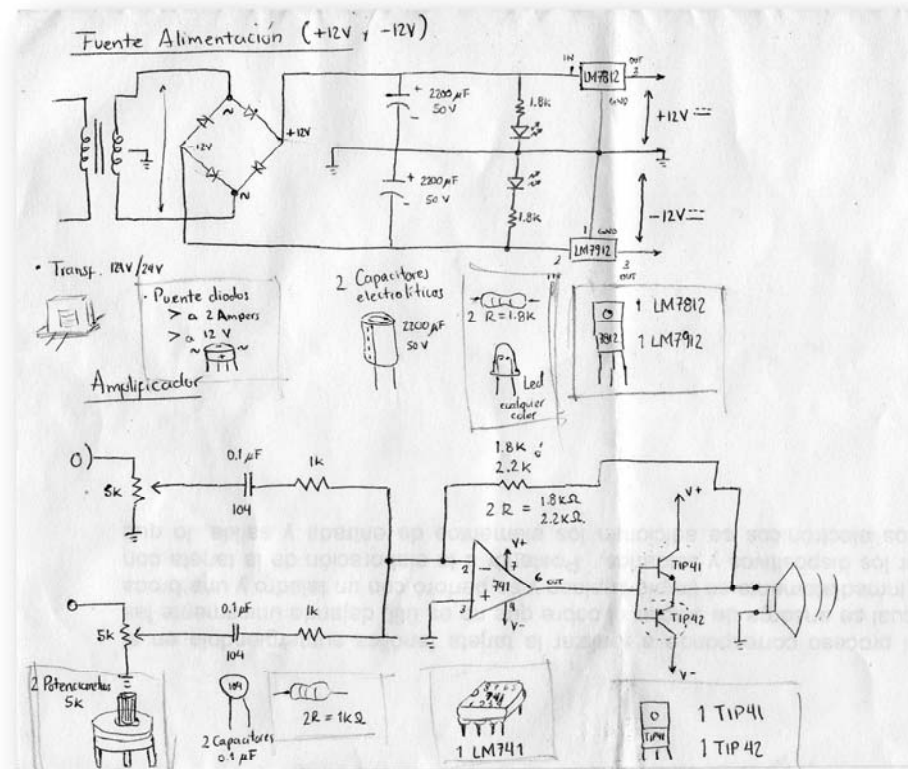 Fuente Alimentación (+12V y -12V)
IN
LM7812
OUT
3
GND
+12V
+
2200 µF
50 V
1.8K
+12V
-12V
+
2200 µF
50 V
1.8K
-12V
1
GND
LM7912
2
3
OUT
IN
• Transf. 12V/24V
· Puente diodos
> a 2 Ampers
> a 12 V
2 Capacitores
electrolíticos
2200 µF
50 V
2 R = 1.8K
Led
cualquier
color
7812
1 LM7812
1 LM7912
Amplificador
5K
0.1 µF
104
1K
1.8K ó
2.2K
2 R = 1.8KΩ
2.2KΩ
2
3
741
7
V+
6 OUT
4
V-
V+
TIP41
TIP42
V-
5K
0.1 µF
104
1K
2 Potenciometros
5K
104
2 Capacitores
0.1 µF
2R = 1KΩ
741
1 LM741
TIP41
1 TIP41
1 TIP42